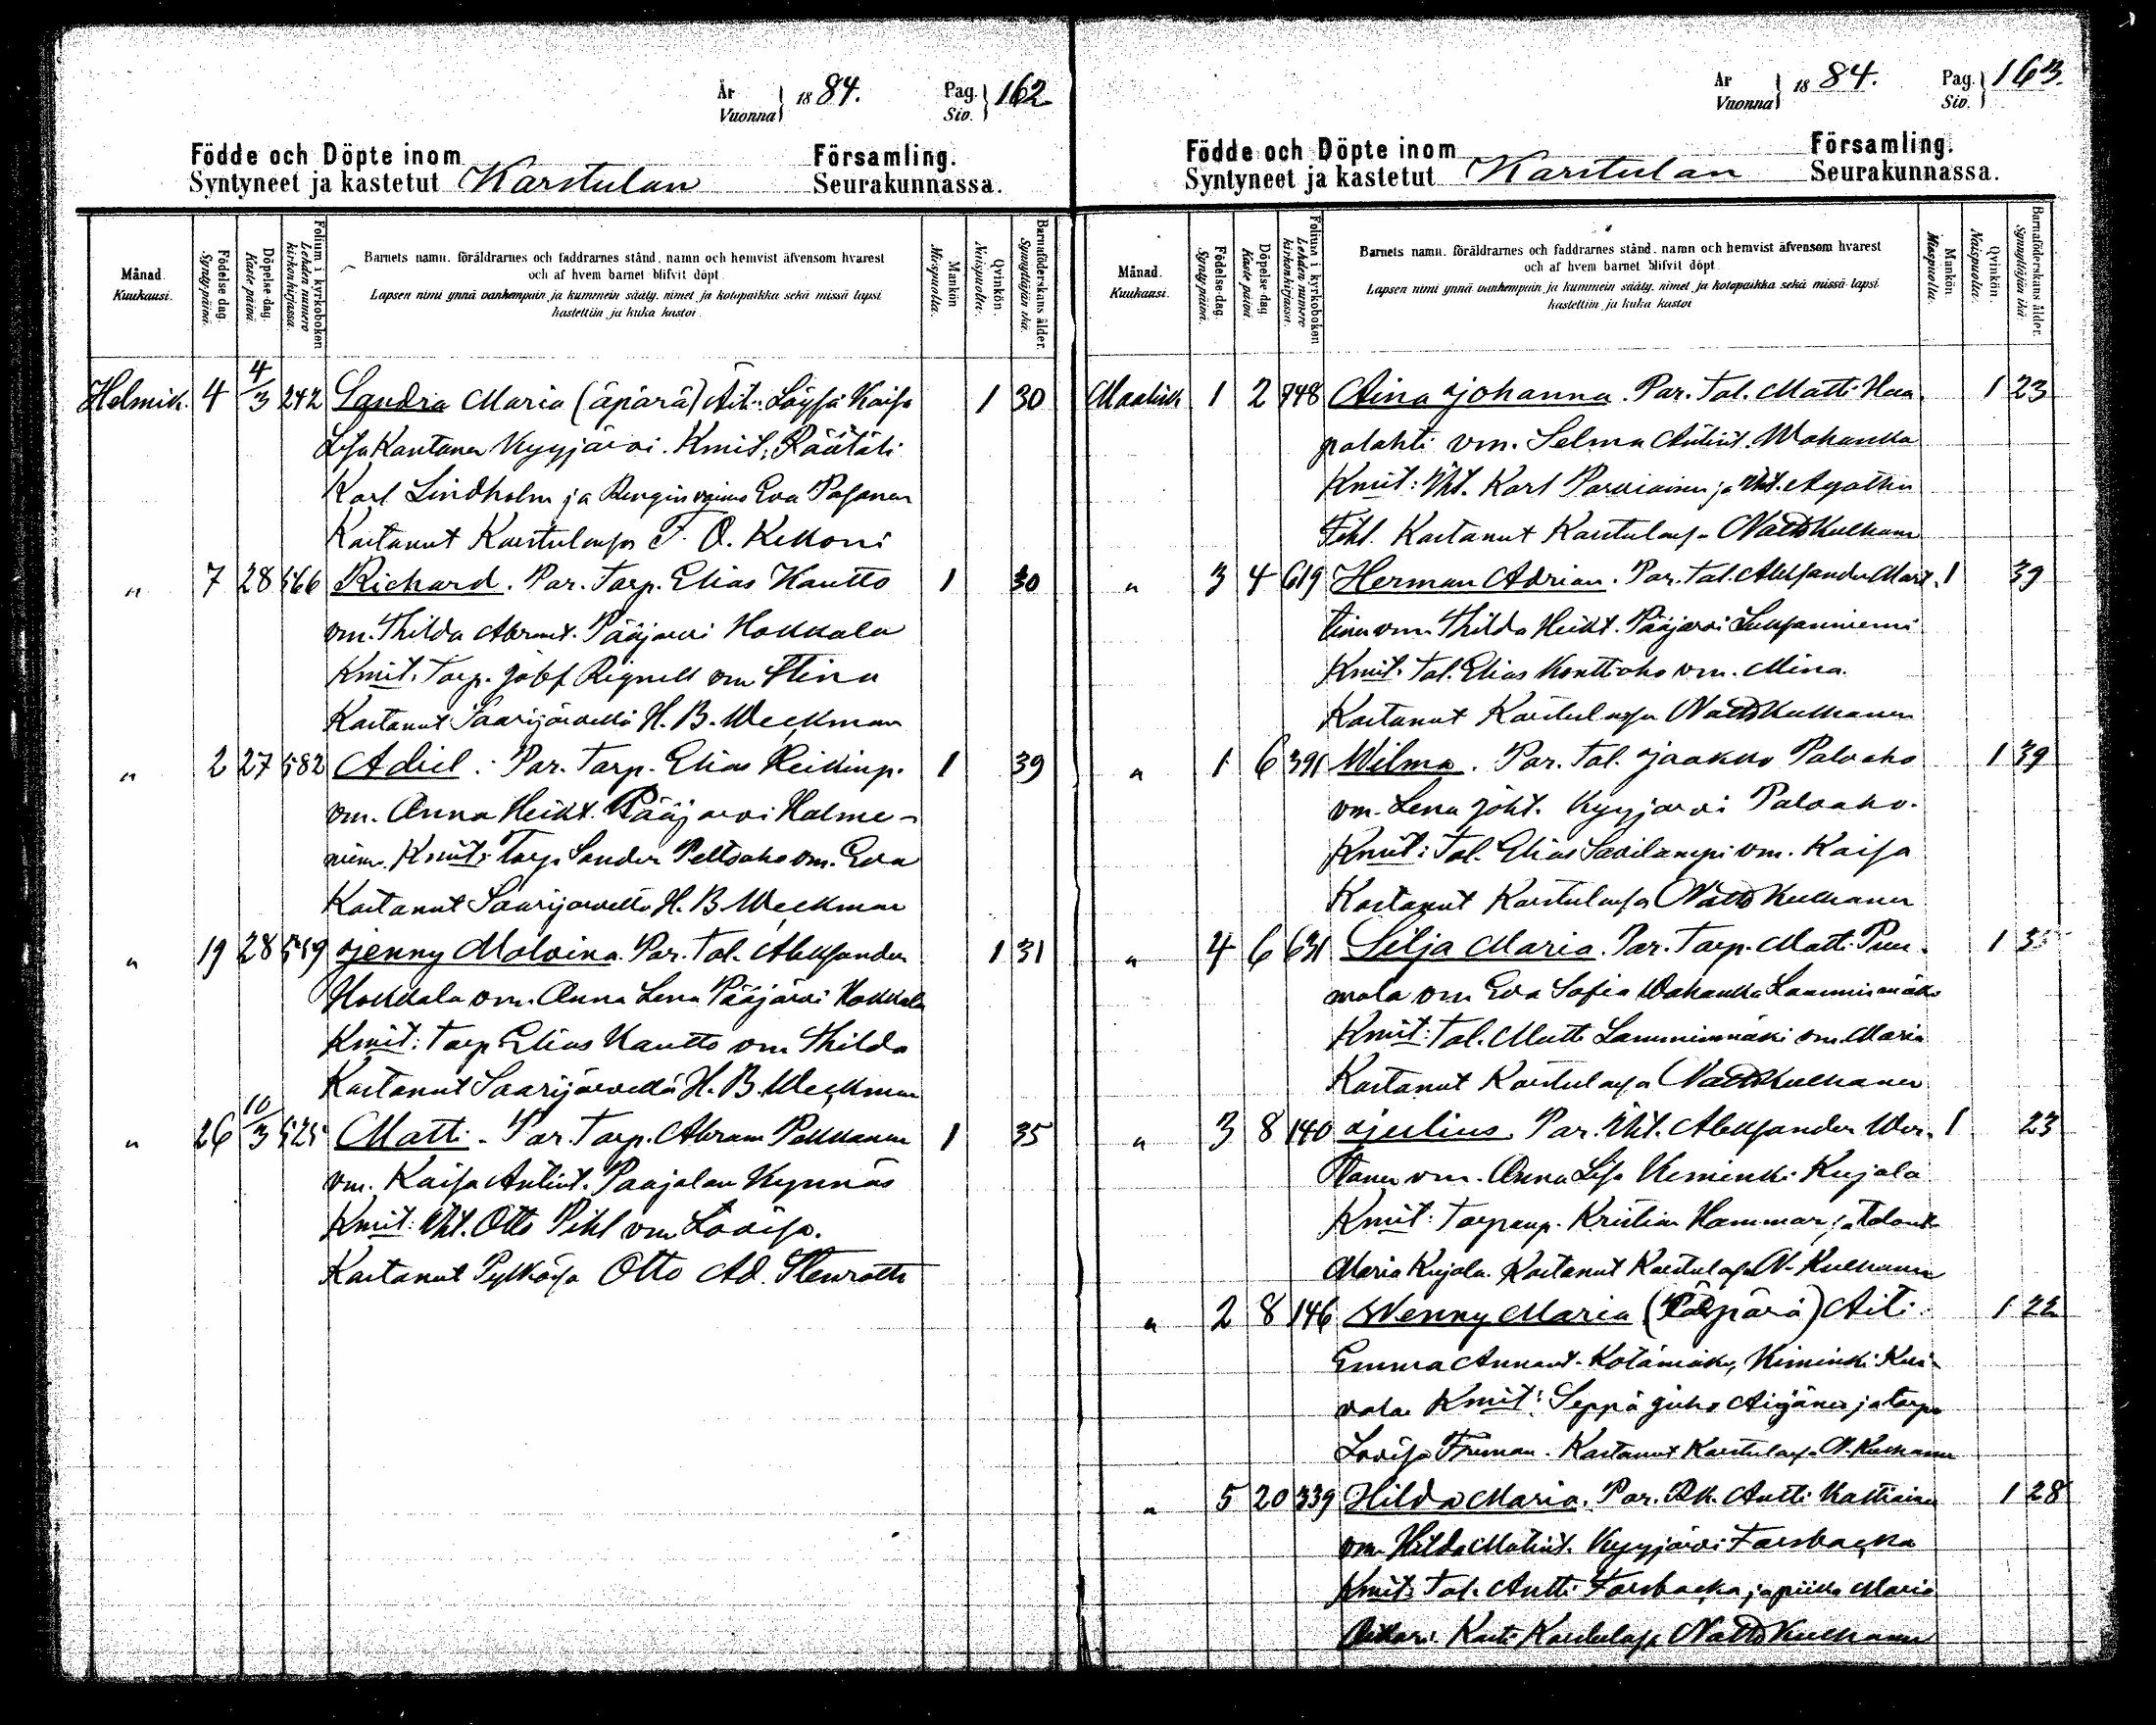 År
Vuonna } 1884. Pag.
Siv. } 162
Födde och Döpte inom Församling.
Syntyneet ja kastetut Karstulan Seurakunnassa.
Månad.
Kuukausi.
Födelse dag.
Synty-päivä.
Döpelse-dag.
Kaste-päivä.
Folium i kyrkoboken
Lehden numero
kirkonkirjassa.
Barnets namn, föräldrarnes och faddrarnes stånd, namn och hemvist äfvensom hvarest
och af hvem barnet blifvit döpt.
Lapsen nimi ynnä vanhempain ja kummein sääty, nimet ja kotopaikka sekä missä lapsi
kastettiin ja kuka kastoi.
Mankön
Miespuolta.
Qvinkön.
Naispuolta.
Barnaföderskans ålder.
Synnyttäjän ikä.
Helmik. 4 4/3 242 Sandra Maria (äpärä) Äit. Löysä Kaisa 1 30
Lisa Kautanen Kyyjärvi. Kmit: Räätäli
Karl Lindholm ja Rengin vaimo Eva Pasanen
Kastanut Karstulassa F. O. Kekoni
" 7 28 566 Richard. Par. Torp. Elias Kautto 1 30
vm. Thilda Abramt. Pääjärvi Hokkala
Kmit. Torp. Josef Rignell vm Stina
Kastanut Saarijärvellä H. B. Weckman
" 2 27 582 Adiel. Par. Torp. Elias Heikinp. 1 39
vm. Anna Heikt. Pääjärvi Halme-
niem. Kmit: Torp Sander Peltoaho vm. Eva
Kastanut Saarijärvellä H. B. Weckman
" 19 28 559 Jenny Malvina. Par. Tal. Aleksander 1 31
Hokkala vm. Anna Lena Pääjärvi Hokkala
Kmit: Torp Elias Kautto vm Thilda
Kastanut Saarijärvellä H. B. Weckman
" 26 10/3 525 Matti. Par. Torp. Abram Pekkanen 1 35
vm. Kaisa Antint. Paajalan Kynnäs
Kmit: Iht. Otto Pihl vm Lovisa.
Kastanut Pylkössä Otto Ad. Stenroth
År
Vuonna } 1884. Pag.
Siv. } 163.
Födde och Döpte inom Församling.
Syntyneet ja kastetut Karstulan Seurakunnassa.
Månad.
Kuukausi.
Födelse-dag.
Synty-päivä.
Döpelse-dag
Kaste-päivä
Folium i kyrkoboken
Lehden numero
kirkonkirjassa.
Barnets namn, föräldrarnes och faddrarnes stånd, namn och hemvist äfvensom hvarest
och af hvem barnet blifvit döpt.
Lapsen nimi ynnä vanhempain ja kummein sääty, nimet ja kotopaikka sekä missä lapsi
kastettiin ja kuka kastoi
Mankön
Miespuolta.
Qvinkön.
Naispuolta.
Barnaföderskans ålder.
Synnyttäjän ikä.
Maalisk 1 2 748 Aina Johanna. Par. Tal. Matti Haa- 1 23
palahti vm. Selma Antint. Wahanka
Kmit: Iht. Karl Parviainen ja Iht. Agatha
Kastanut Karstulassa Natt Kulhanen
" 3 4 619 Herman Adrian. Par. Tal. Aleksander Mart- 1 39
tinen vm. Thilda Heikt. Pääjärvi
Kmit. Tal. Elias Konttioho vm. Mina.
Kastanut Karstulassa Natt Kulhanen
" 1 6 391 Wilma. Par. Tal. Jaakko Paloaho 1 39
vm. Lena Joht. Kyyjärvi Paloaho.
Kmit: Tal. Elias Savilampi vm. Kaisa
Kastanut Karstulassa Natt Kulhanen
" 4 6 631 Selja Maria. Par. Torp. Matti Puu- 1
mala vm Eva Sofia Wahanka Lamminmäki
Kmit: Tal. Matti Lamminmäki vm. Maria
Kastanut Karstulassa Natt Kulhanen
" 3 8 140 Julius. Par. Iht. Aleksander Wer- 1 23
tanen vm. Anna Lisa Kiminki Kujala
Kmit: Torpanp. Kristian Hammar ja Talont.
Maria Kujala. Kastanut Karstulassa N. Kulhanen
" 2 8 146 Wenny Maria (äpärä) Äiti 1 22
Emma Annant. Kotämäki, Kiminki Kui-
vala Kmit: Seppä Juho Äijänen ja torp.
Lovisa Friman. Kastanut Karstulassa N. Kulhanen
" 5 20 339 Hilda Maria. Par. Rk. Antti Kattiainen 1 28
vm Hilda Matint. Kyyjärvi Forsbacka
Kmit: Tal. Antti Forsbacka ja piika Maria
Kast. Karstulassa Natt Kulhanen